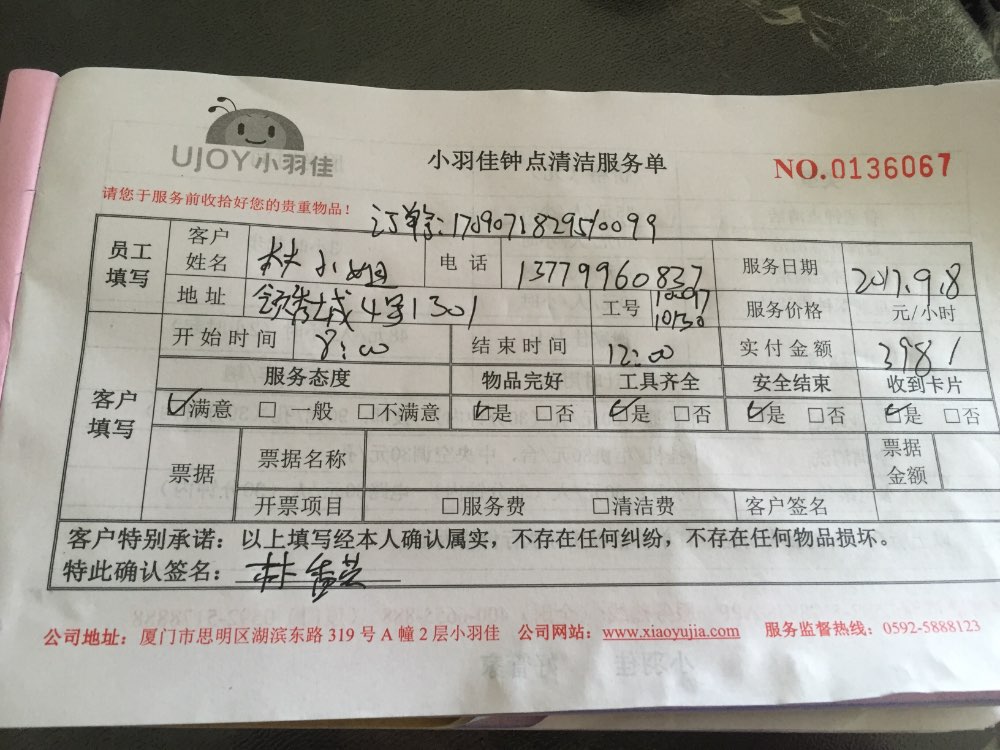 UJOY小羽佳
小羽佳钟点清洁服务单
NO.0136067
请您于服务前收拾好您的贵重物品!
订单号:1709071829510099
员工填写 客户姓名 林小姐 电话 13779960837 服务日期 2017.9.8
地址 领秀城4号1301 工号 10130 服务价格 元/小时
客户填写 开始时间 8:00 结束时间 12:00 实付金额 398/
服务态度 物品完好 工具齐全 安全结束 收到卡片
☑满意 □一般 □不满意 ☑是 □否 ☑是 □否 ☑是 □否 ☑是 □否
票据 票据名称 票据金额
开票项目 □服务费 □清洁费 客户签名
客户特别承诺:以上填写经本人确认属实,不存在任何纠纷,不存在任何物品损坏。
特此确认签名:林
公司地址:厦门市思明区湖滨东路 319 号 A 幢 2 层小羽佳 公司网站:www.xiaoyujia.com 服务监督热线:0592-5888123